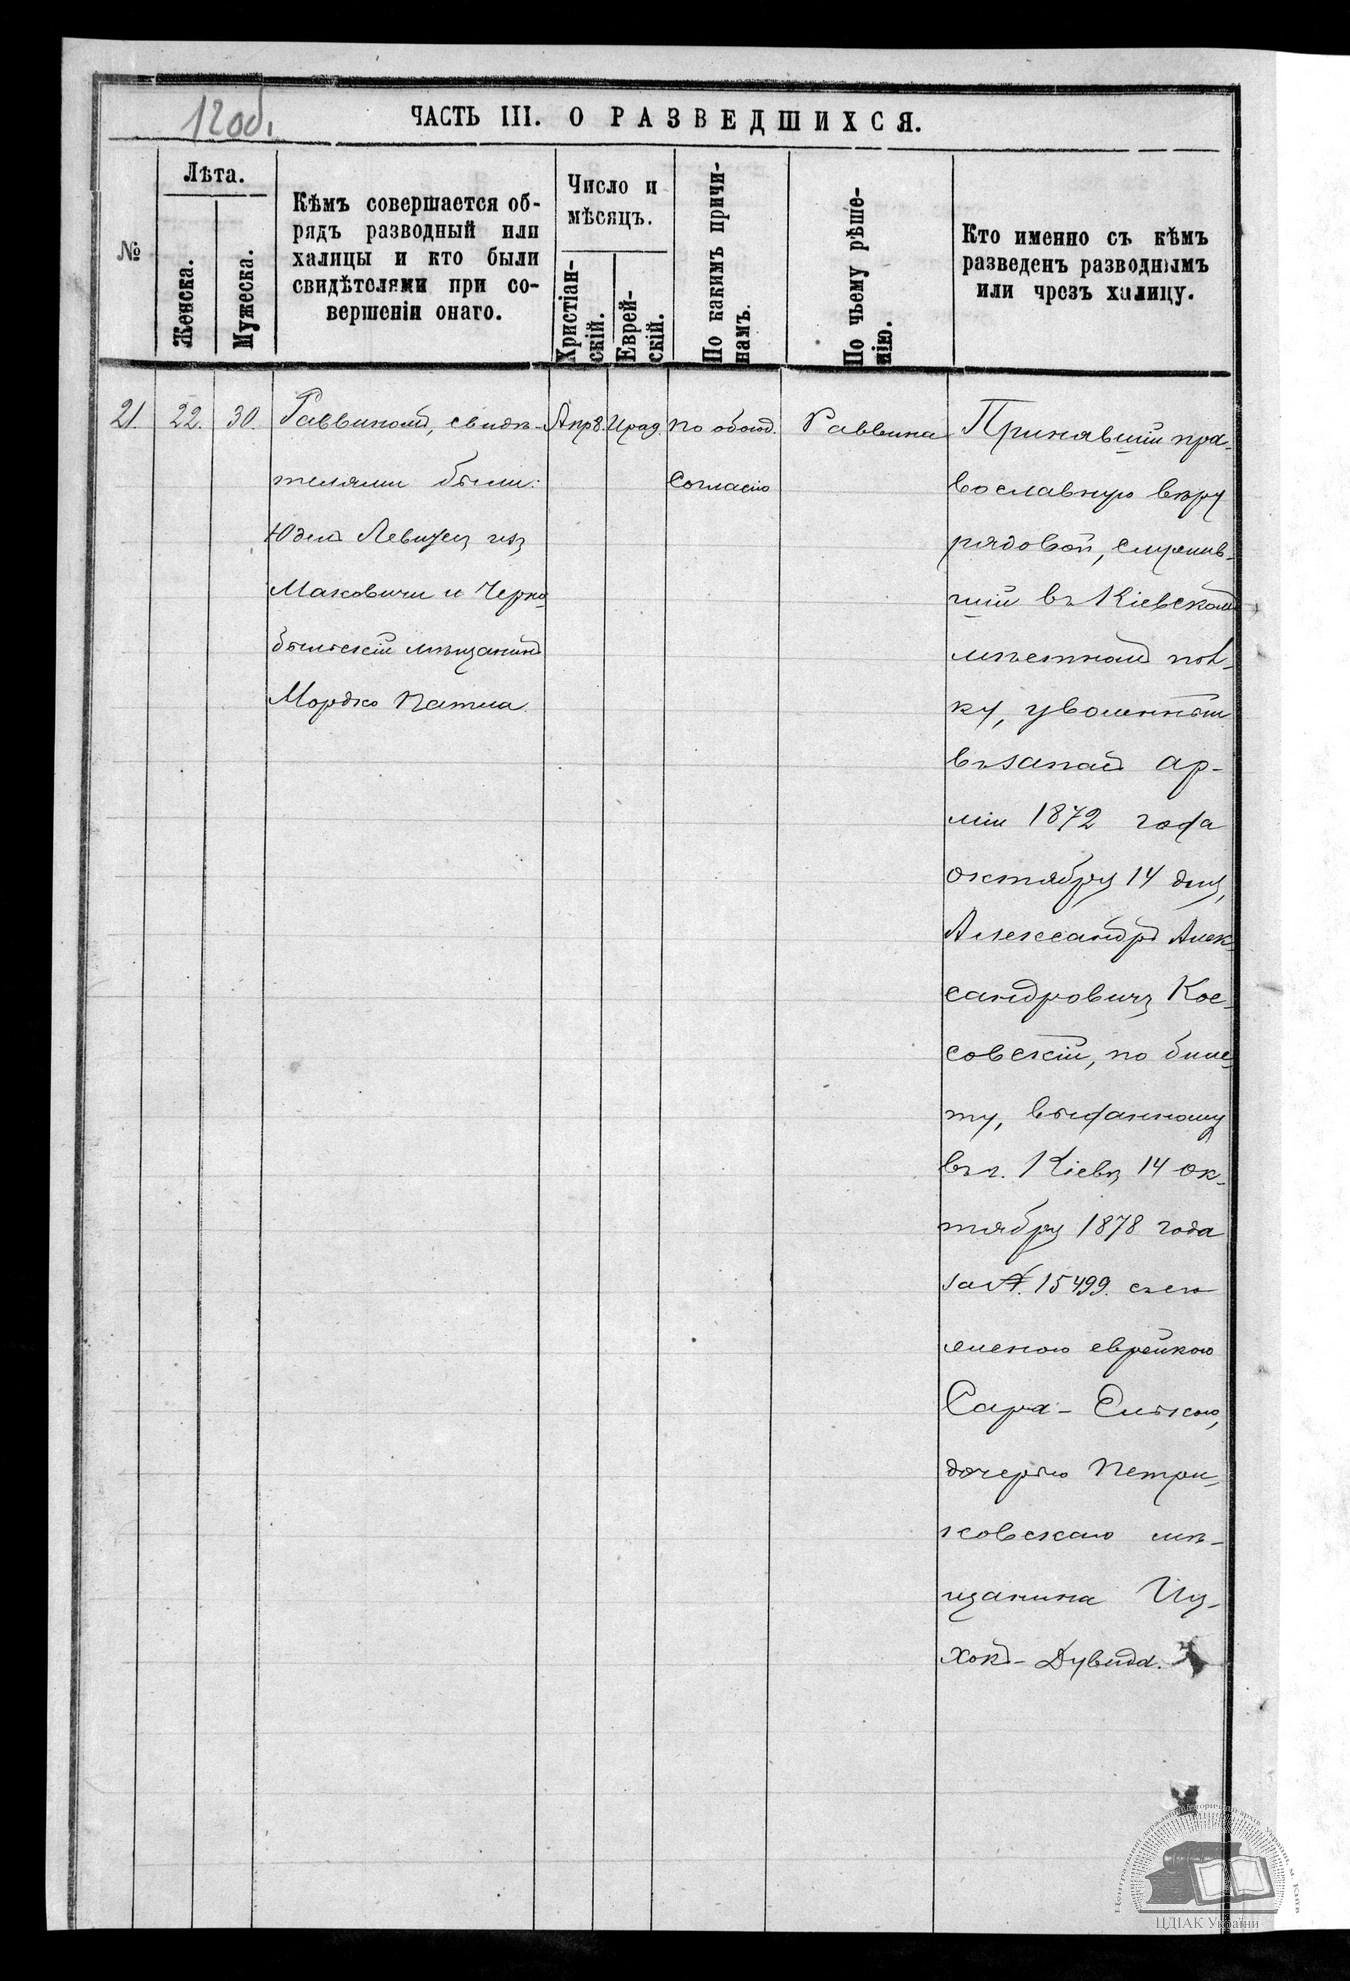 12 об.
ЧАСТЬ III. О РАЗВЕДШИХСЯ.
№
Лѣта.
Женска.
Мужеска.
Кѣмъ совершается об-
рядъ разводный или
халицы и кто были
свидѣтелями при со-
вершеніи онаго.
Число и
мѣсяцъ.
Христіан-
скій.
Еврей-
скій.
По какимъ причи-
намъ.
По чьему рѣше-
нію.
Кто именно съ кѣмъ
разведенъ разводнымъ
или чрезъ халицу.
21. 22. 30.
Раввиномъ, свидѣ-
телями были:
Юдель
Маковичи и Черно-
быльскій мѣщанинъ
Мордко
Апр 8.
по обоюд.
согласію
Раввина
Принявшій пра-
вославную вѣру
рядовой, служив-
шій въ Кіевскомъ
мѣстномъ пол-
ку, уволенный
въ запасъ ар-
міи 1872 года
октября 14 дня,
Александръ Алек-
сандровичъ Кос-
совскій, по биле-
ту, выданному
въ г. Кіевѣ 14 ок-
тября 1878 года
за №. 15499. съ его
женою еврейкою
Сара-Елькою,
дочерью Петри-
ковскаго мѣ-
щанина Иц-
хокъ-Дувида.
Центральний державний історичний архів України, м. Київ
ЦДІАК України